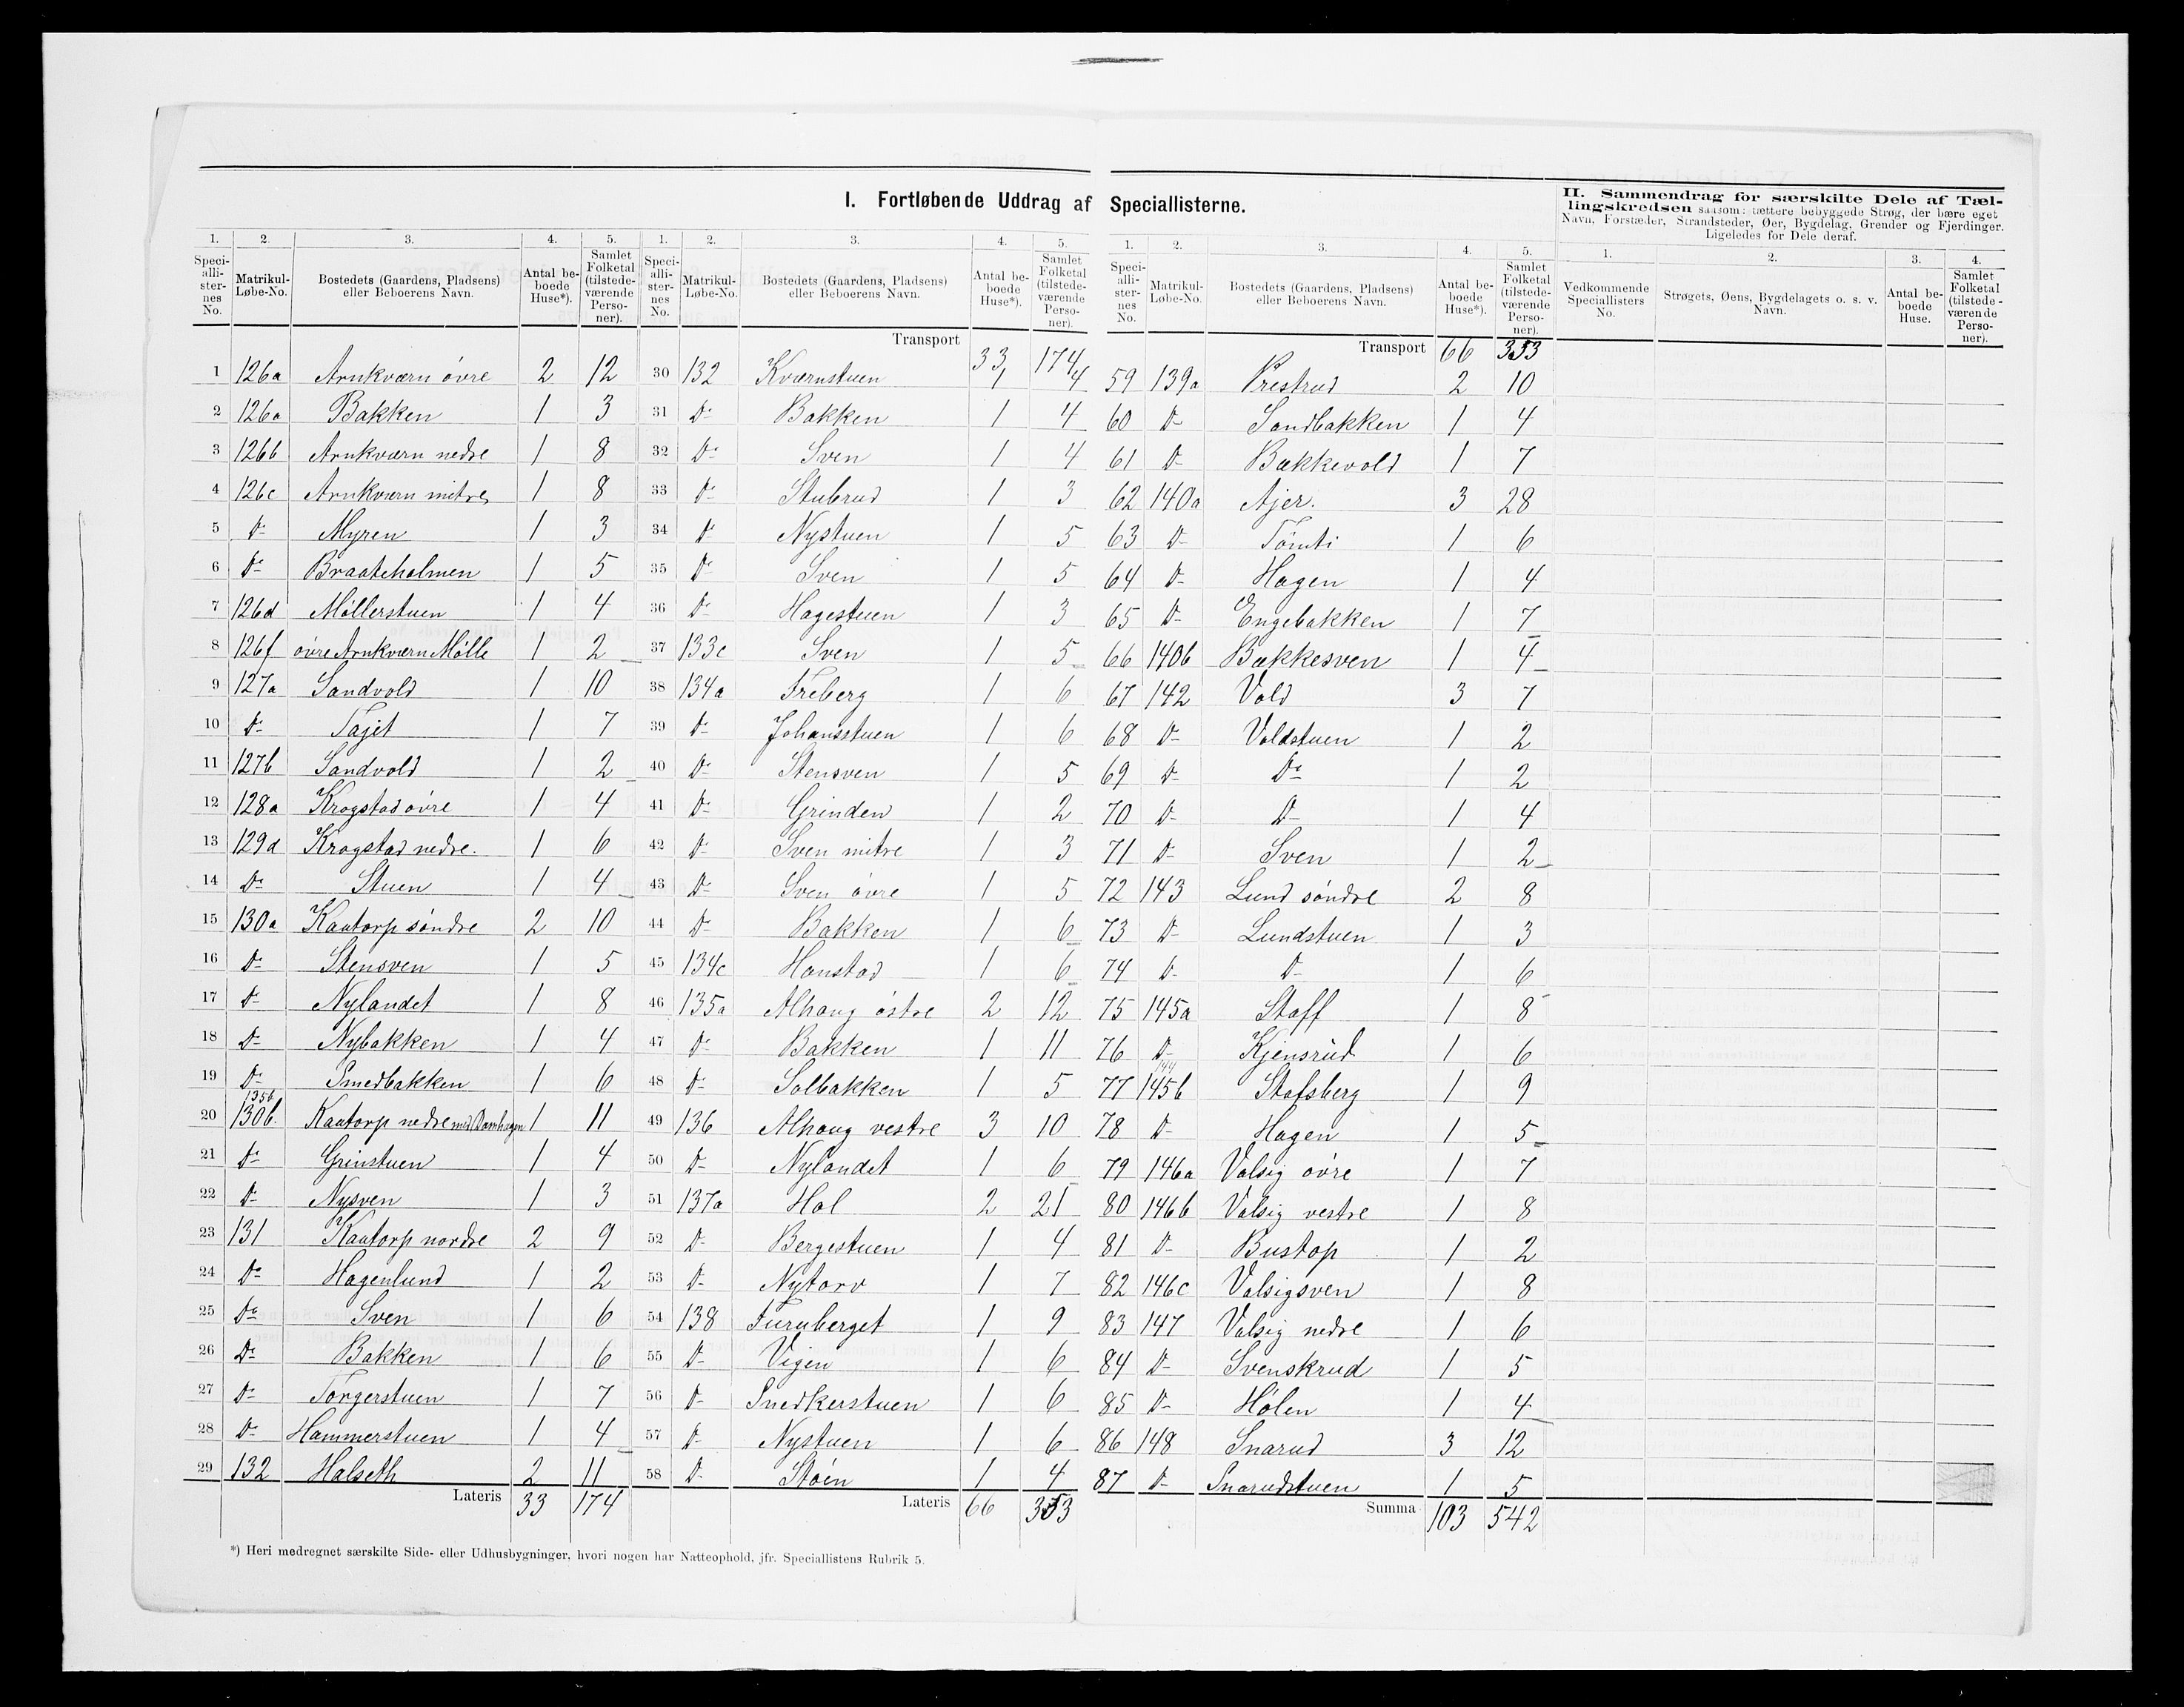 I. Fortløbende Uddrag af Speciallisterne.
1. 2. 3. 4. 5.
Speci-alli-ster-nes No. | Matrikul-Løbe-No. | Bostedets (Gaardens, Pladsens) eller Beboerens Navn. | Antal be-boede Huse*). | Samlet Folketal (tilstede-værende Perso-ner).
1 126a Arnkværn øvre 2 12
2 126a Bakken 1 3
3 126b Arnkværn nedre 1 8
4 126c Arnkværn mitre 1 8
5 Do Myren 1 3
6 Do Braateholmen 1 5
7 126d Møllerstuen 1 4
8 126f øvre Arnkværn Mølle 1 2
9 127a Sandvold 1 10
10 Do Tajet 1 7
11 127b Sandvold 1 2
12 128a Krogstad øvre 1 4
13 129d Krogstad nedre. 1 6
14 Do Stuen 1 4
15 130a Kaatorp søndre 2 10
16 Do Stensven 1 5
17 Do Nylandet 1 8
18 Do Nybakken 1 4
19 Do Smedbakken 1 6
135b
20 130b. Kaatorp nedre med Damhagen 1 11
21 Do Grinstuen 1 4
22 Do Nysven 1 3
23 131 Kaatorp nordre 2 9
24 Do Hagenlund 1 2
25 Do Sven 1 6
26 Do Bakken 1 6
27 Do Torgerstuen 1 7
28 Do Hammerstuen 1 4
29 132 Halseth 2 11
Lateris 33 174
1. 2. 3. 4. 5.
Speci-alli-ster-nes No. | Matrikul-Løbe-No. | Bostedets (Gaardens, Pladsens) eller Beboerens Navn. | Antal be-boede Huse*). | Samlet Folketal (tilstede-værende Perso-ner).
Transport 33 174
30 132 Kværnstuen 1 4
31 Do Bakken 1 4
32 Do Sven 1 4
33 Do Stubrud 1 3
34 Do Nystuen 1 5
35 Do Sven 1 5
36 Do Hagestuen 1 3
37 133c Sven 1 5
38 134a Freberg 1 6
39 Do Johansstuen 1 6
40 Do Stensven 1 5
41 Do Grinden 1 2
42 Do Sven mitre 1 3
43 Do Sven øvre 1 5
44 Do Bakken 1 6
45 134c Hanstad 1 6
46 135a Alhaug østre 2 12
47 Do Bakken 1 11
48 Do Solbakken 1 5
49 136 Alhaug vestre 3 10
50 Do Nylandet 1 6
51 137a Hol 2 21
52 Do Bergestuen 1 4
53 Do Nytorv 1 7
54 138 Furuberget 1 9
55 Do Vigen 1 6
56 Do Snedkerstuen 1 6
57 Do Nystuen 1 6
58 Do Støen 1 4
Lateris 66 353
1. 2. 3. 4. 5.
Speci-alli-ster-nes No. | Matrikul-Løbe-No. | Bostedets (Gaardens, Pladsens) eller Beboerens Navn. | Antal be-boede Huse*). | Samlet Folketal (tilstede-værende Perso-ner).
Transport 66 353
59 139a Prestrud 2 10
60 Do Sandbakken 1 4
61 Do Bækkevold 1 7
62 140a Ajer. 3 28
63 Do Tømti 1 6
64 Do Hagen 1 4
65 Do Engebakken 1 7
66 140b Bækkesven 1 4
67 142 Vold 3 7
68 Do Voldstuen 1 2
69 Do Do 1 2
70 Do Do 1 4
71 Do Sven 1 2
72 143 Lund søndre 2 8
73 Do Lundstuen 1 3
74 Do Do 1 6
75 145a Staff 1 8
76 Do Kjensrud 1 6
144
77 145b Stafsberg 1 9
78 Do Hagen 1 5
79 146a Valsig øvre 1 7
80 146b Valsig vestre 1 8
81 Do Bustop 1 2
82 146c Valsigsven 1 8
83 147 Valsig nedre 1 6
84 Do Svenskrud 1 5
85 Do Hølen 1 4
86 148 Snarud 3 12
87 Do Snarudstuen 1 5
Summa 103 542
II. Sammendrag for særskilte Dele af Tællingskredsen saasom: tættere bebyggede Strøg, der bære eget Navn, Forstæder, Strandsteder, Øer, Bygdelag, Grender og Fjerdinger. Ligeledes for Dele deraf.
1. 2. 3. 4.
Vedkommende Speciallisters No. | Strøgets, Øens, Bygdelagets o. s. v. Navn. | Antal be-boede Huse. | Samlet Folketal (tilstede-værende Perso-ner).
*) Heri medregnet særskilte Side- eller Udhusbygninger, hvori nogen har Natteophold, jfr. Speciallistens Rubrik 5.